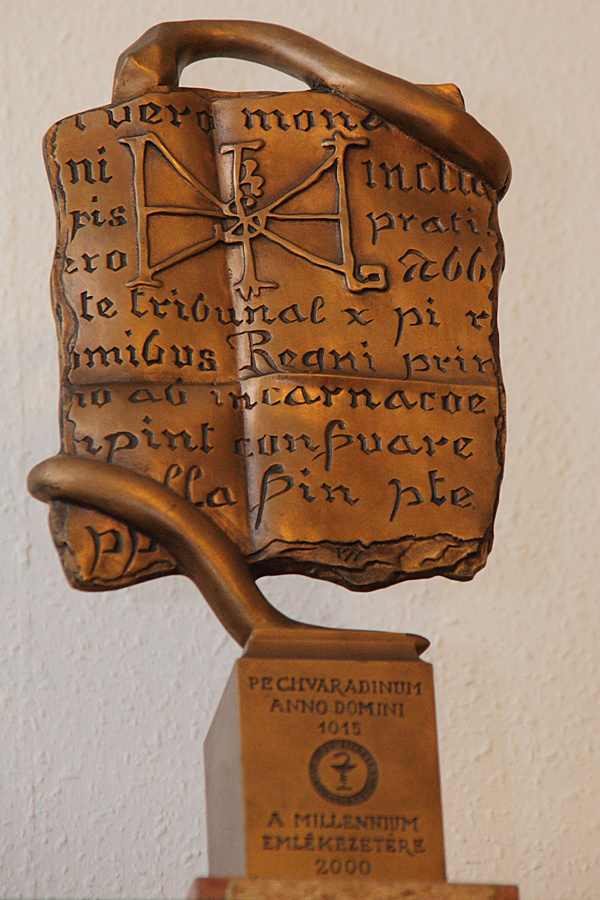 uero mona
ni inclu
pis prati
ero abb
te tribunal x pi r
omibus Regni prin
no ab incarnacoe
npint conseruare
lla sin pte
pp
PECHVARADINUM
ANNO DOMINI
1015
A MILLENNIUM
EMLÉKEZETÉRE
2000